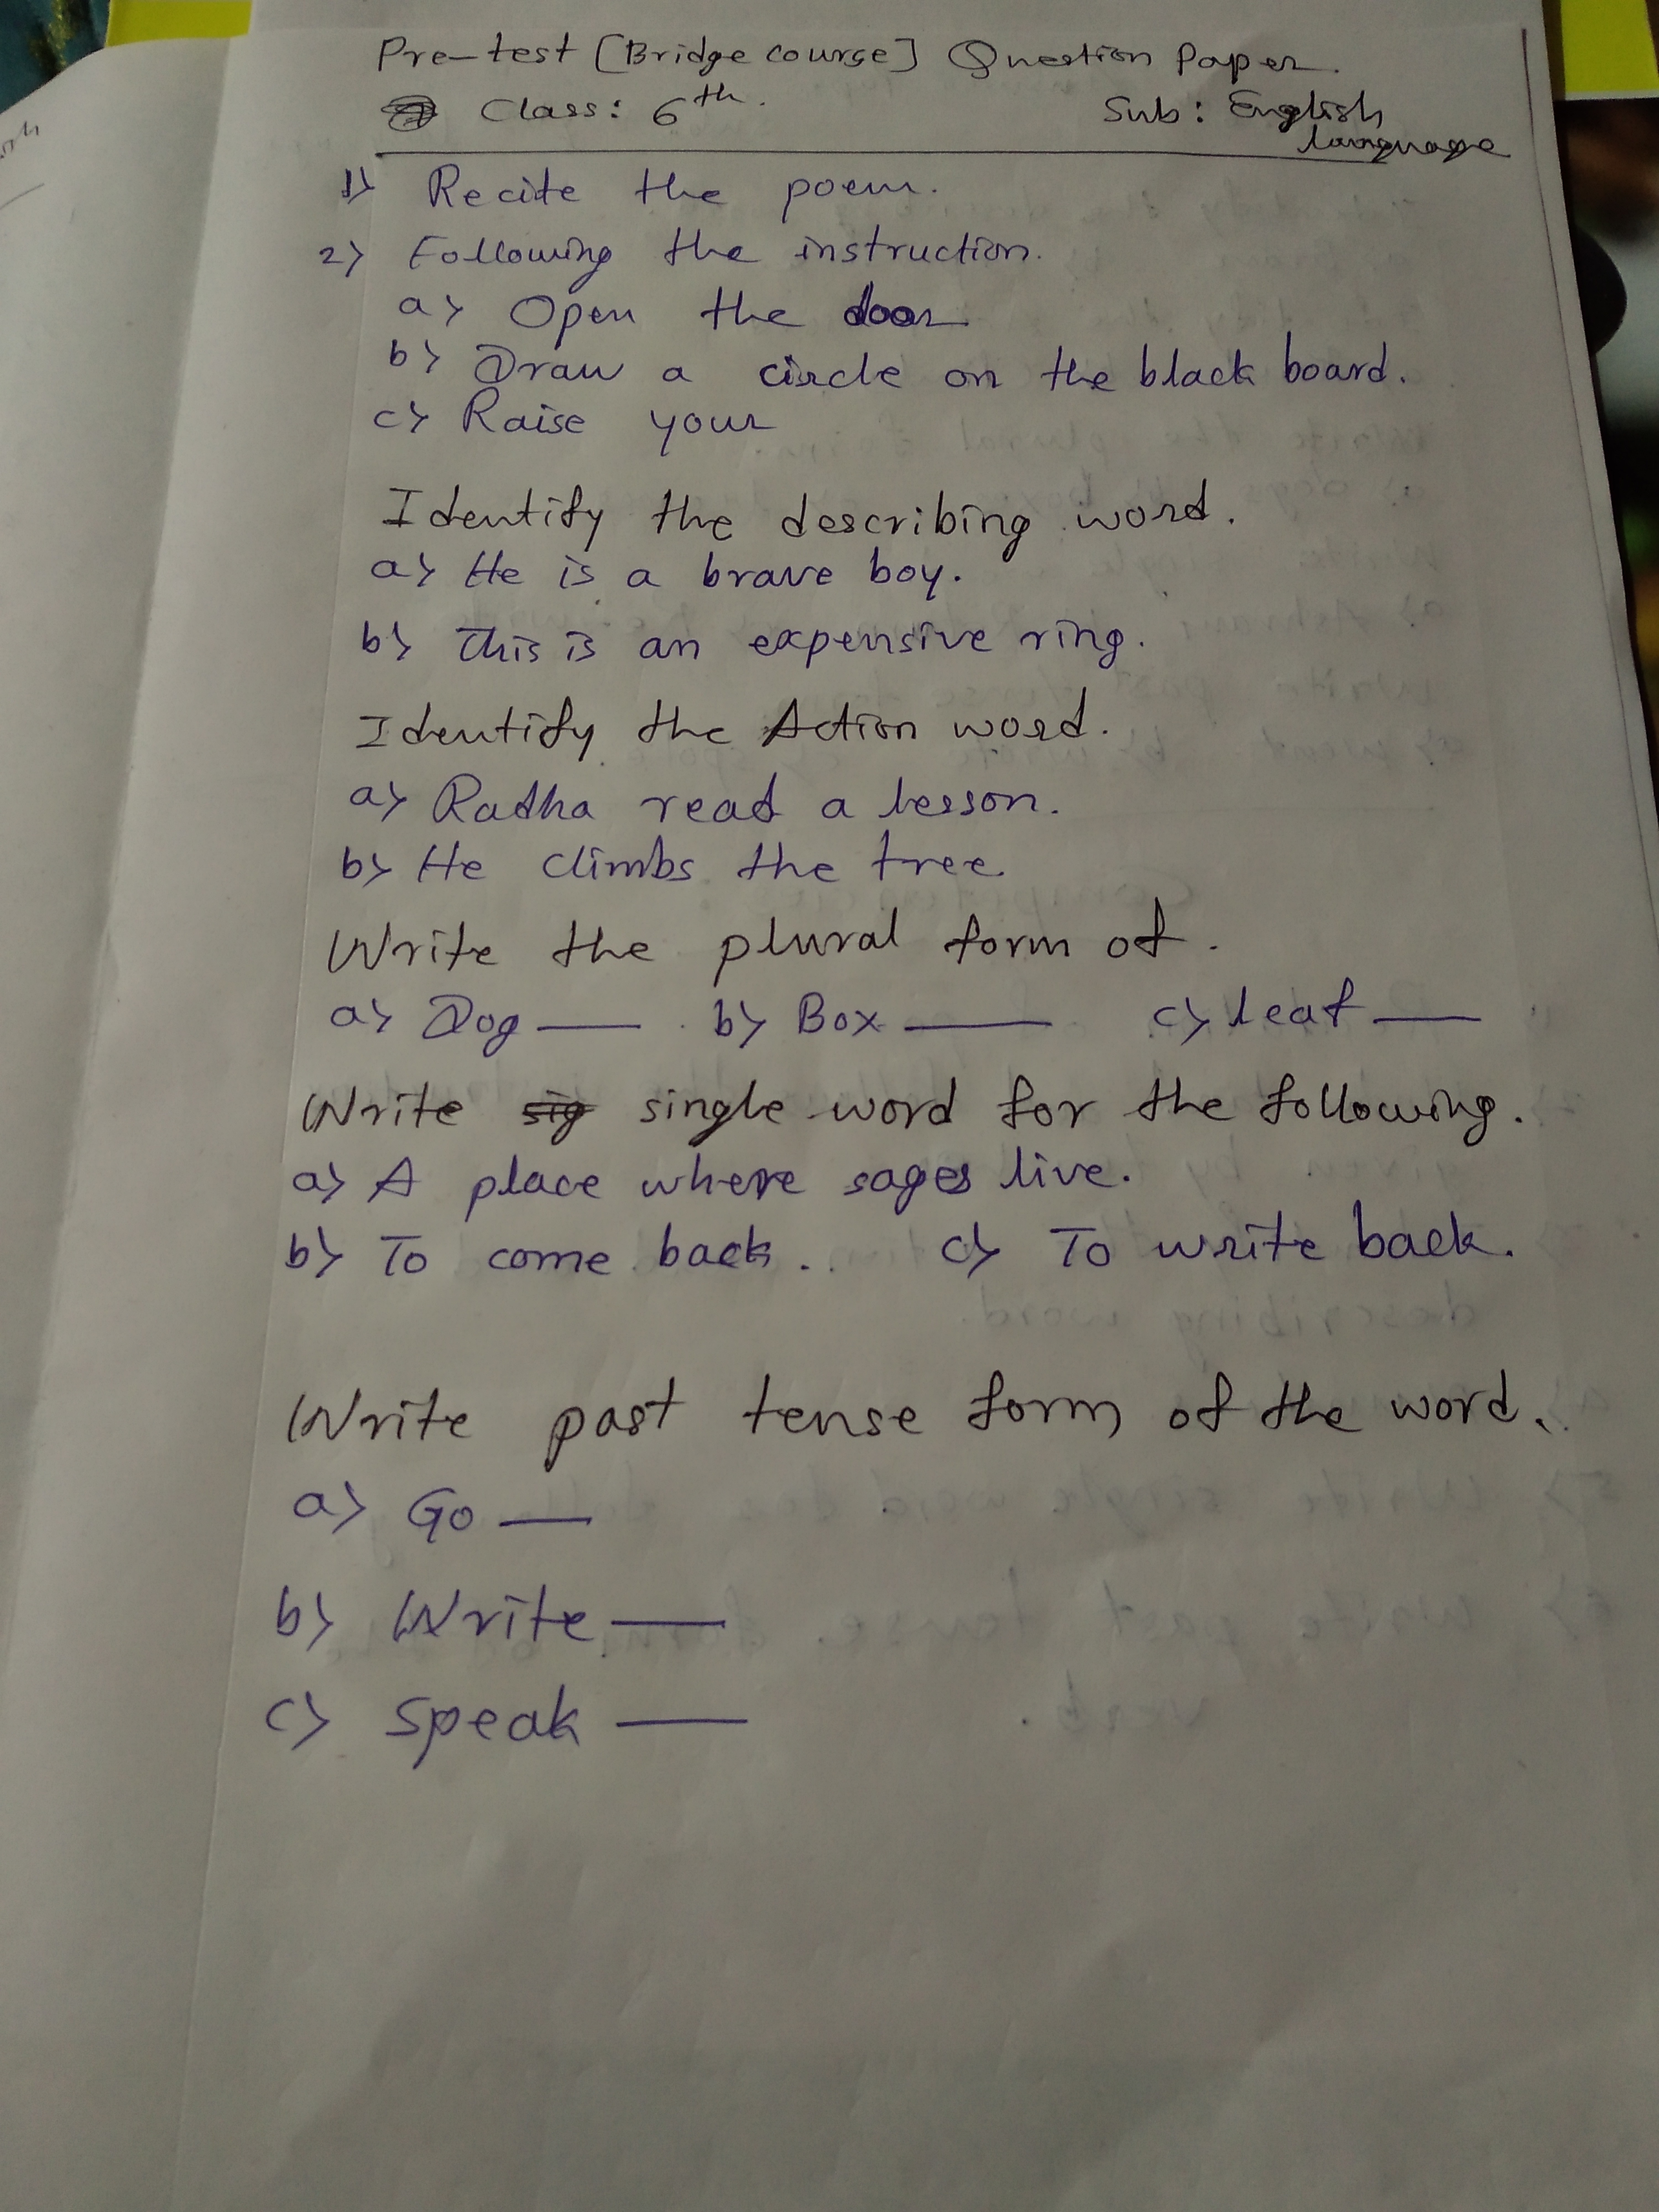 Pre-test [Bridge course] Question Paper.
Class: 6th. Sub: English
language
1) Recite the poem.
2) Following the instruction.
a) Open the door
b) Draw a circle on the black board.
c) Raise your
Identify the describing word.
a) He is a brave boy.
b) This is an expensive ring.
Identify the Action word.
a) Radha read a lesson.
b) He climbs the tree.
Write the plural form of.
a) Dog — b) Box — c) leaf —
Write sig single word for the following.
a) A place where sages live.
b) To come back. c) To write back.
Write past tense form of the word.
a) Go —
b) Write —
c) Speak —